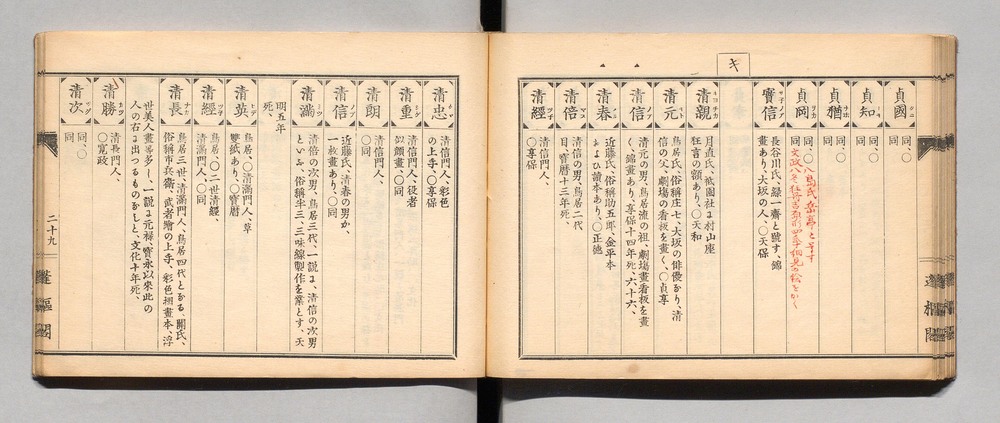 キ
貞國
クニ
同、〇
貞知
同、〇
貞猶
ナホ
同、〇
貞岡
ヲカ
同、〇
鳥氏岳亭と号す
寶信
ノブ
長谷川氏、緑一齋と號す、錦
畫あり、大坂の人、〇天保
清親
キヨチカ
月直氏、祗園社よ村山座
狂言の額あり、〇天和
清元
モト
鳥居氏、俗稱庄七、大坂の俳優なり、清
信の父、劇場の看板を畫く、〇貞享
清信
ノブ
清元の男、鳥居流の祖、劇場畫看板を畫
く、錦畫あり、享保十四年死、六十六、
清春
ハル
近藤氏、俗稱助五郎、金平本
および讀本あり、〇正德
清倍
マス
清信の男、鳥居二代
目、寶曆十三年死、
清經
ツネ
清信門人、
〇享保
清忠
タヾ
清信門人、彩色
の上手、〇享保
清重
シゲ
清信門人、役者
似顔畫、〇同
清朗
清信門人、
〇同
清信
ノブ
近藤氏、清春の男か、
一枚畫あり、〇同
清滿
ミツ
清倍の次男、鳥居三代、一説よ、清信の次男
といふ、俗稱半三、三味線製作を業とす、天
明五年
死、
清英
ヒデ
鳥居、〇清滿門人、草
雙紙あり、〇寶曆
清經
ツネ
鳥居、〇二世清經、
清滿門人、〇同
清長
ナガ
鳥居三世、清滿門人、鳥居四代となる、關氏、
俗稱市兵衛、武者繪の上手、彩色摺畫本、浮
世美人畫等多し、一説よ元祿、寶永以來此の
人の右よ出つるものなしと、文化十年死、
清勝
カツ
清長門人、
〇寛政
清次
ツグ
同、〇
同
二十九